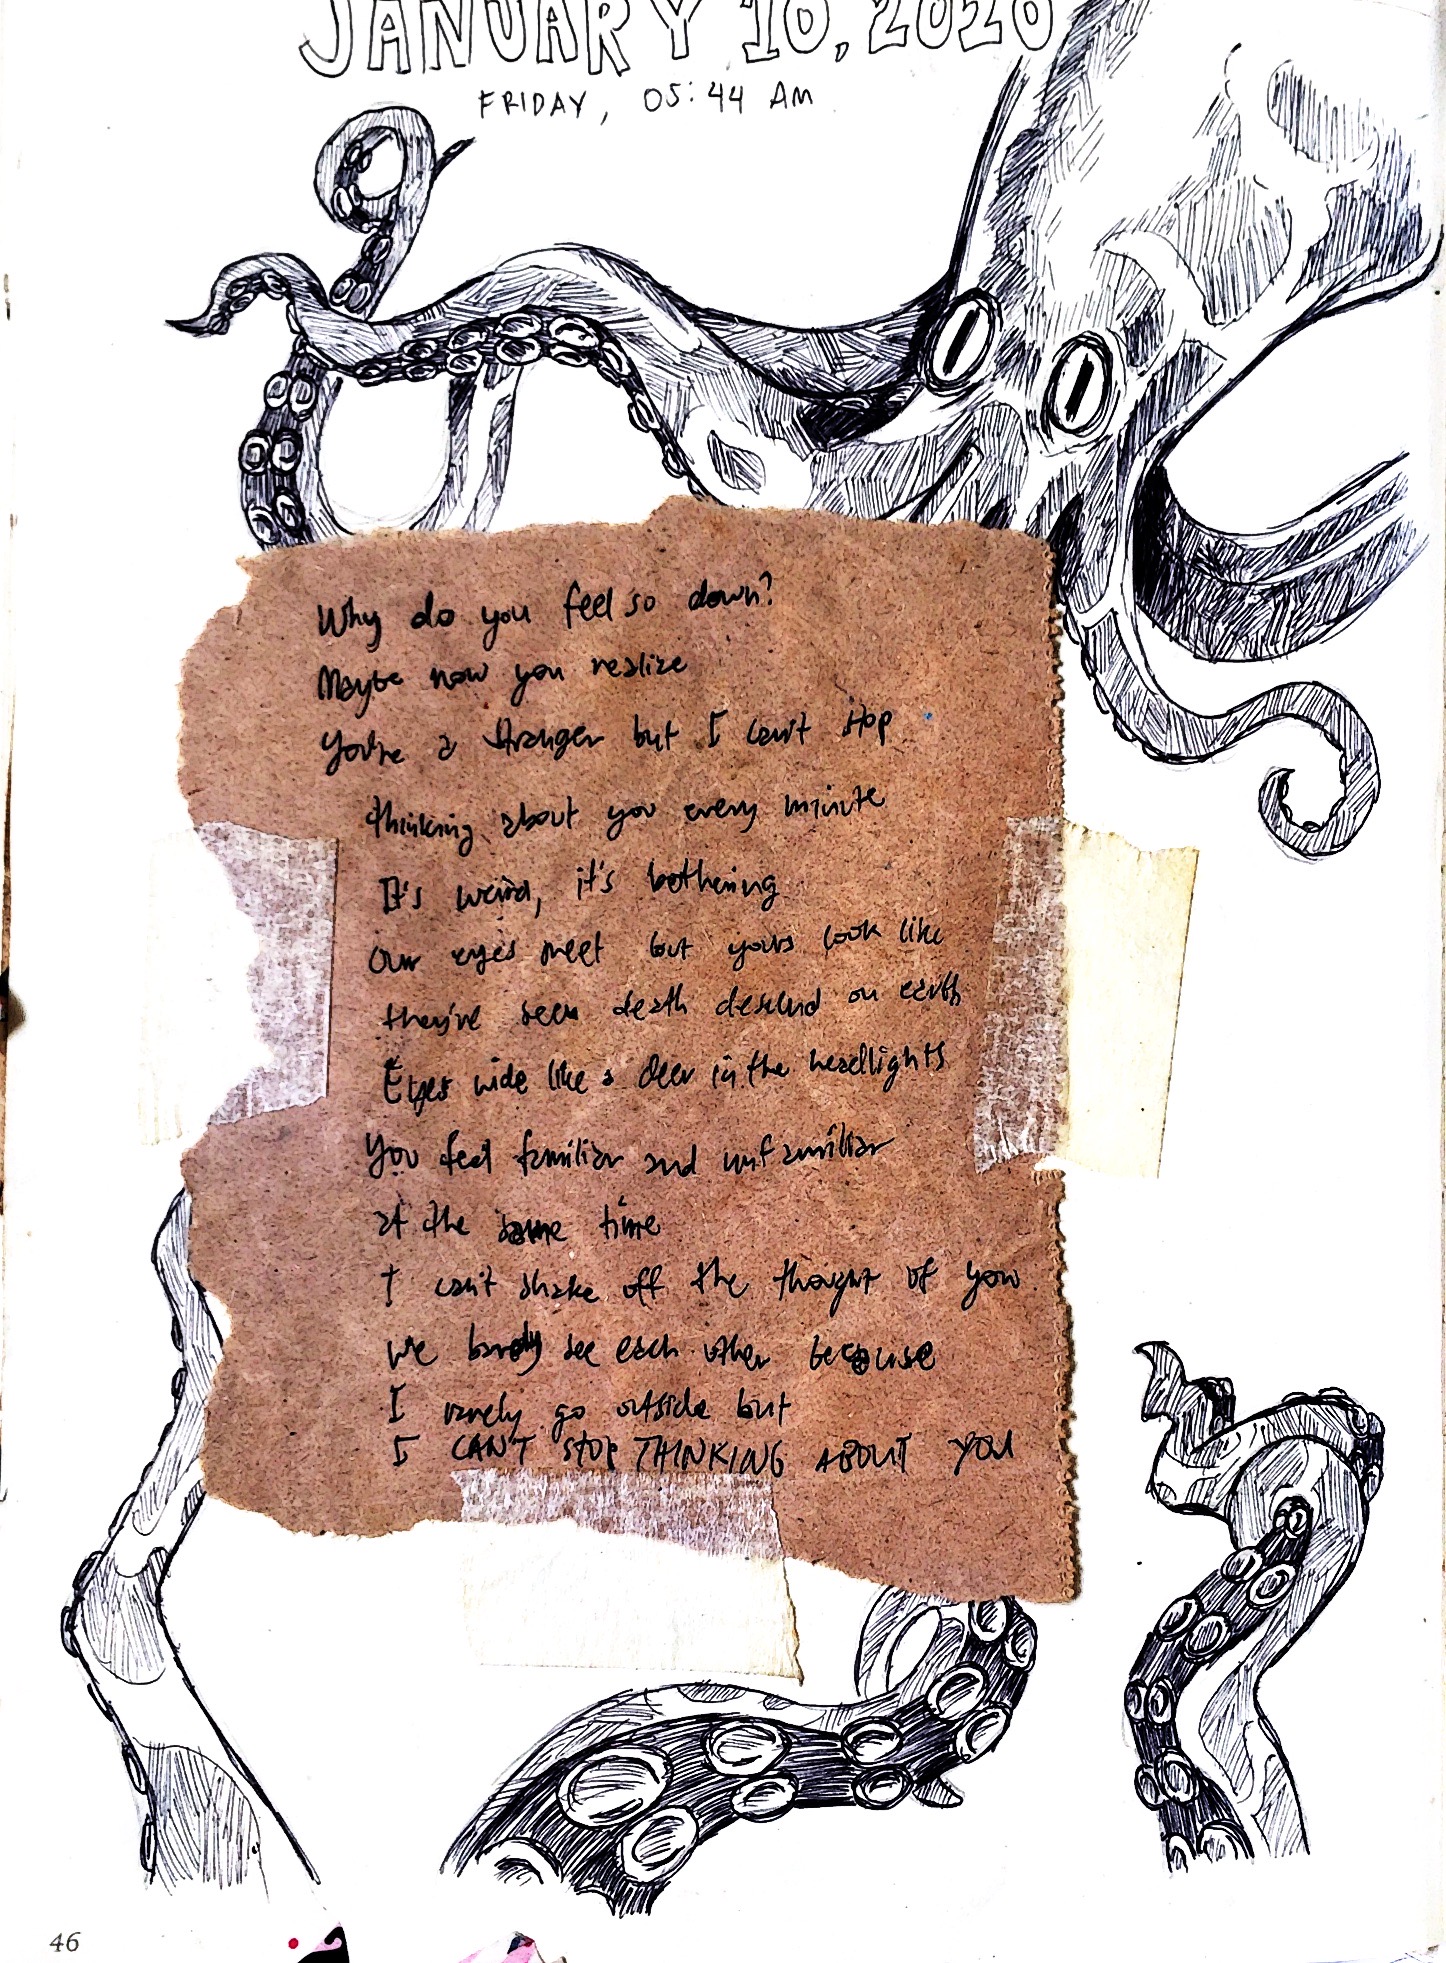 JANUARY 10, 2020
FRIDAY, 05:44 AM
Why do you feel so down?
Maybe now you realize
You're a stranger but I can't stop
thinking about you every minute
It's weird, it's bothering
Our eyes meet but yours look like
they've seen death descend on earth
Eyes wide like a deer in the headlights
You feel familiar and unfamiliar
at the same time
I can't shake off the thought of you
we barely see each other because
I rarely go outside but
I CAN'T STOP THINKING ABOUT YOU
46